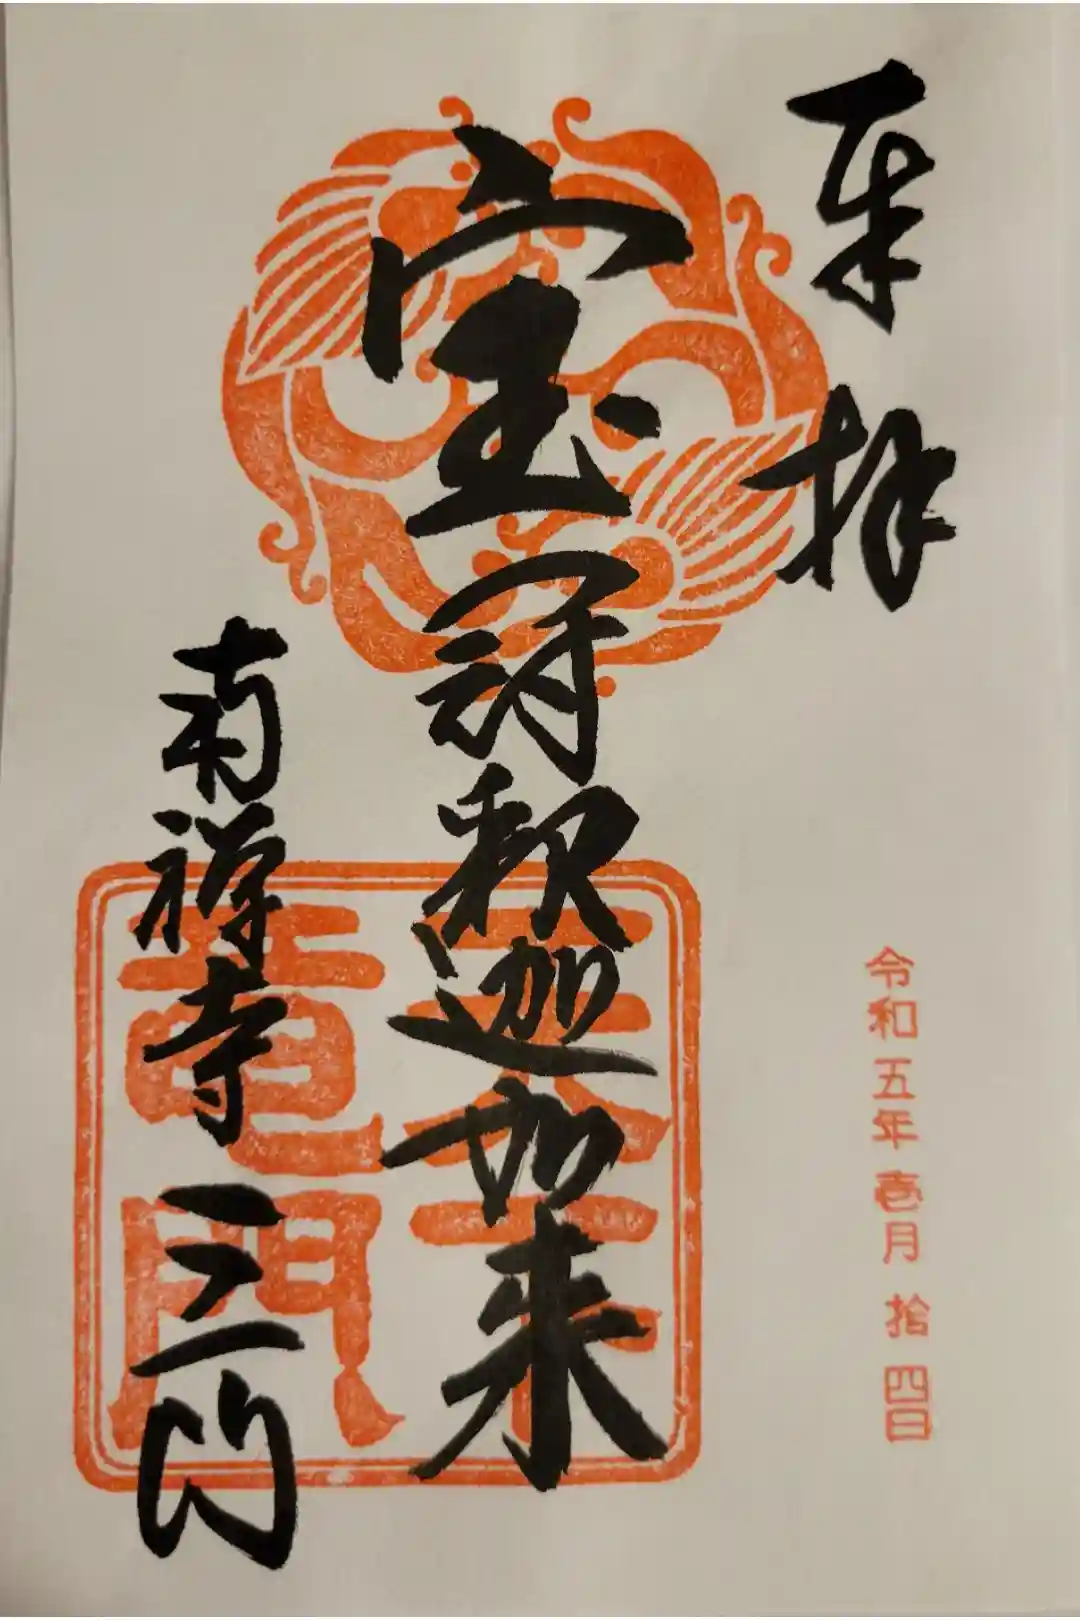 奉拝
令和五年壱月拾四日
宝冠釈迦如来
南禅寺三門
天下
竜門